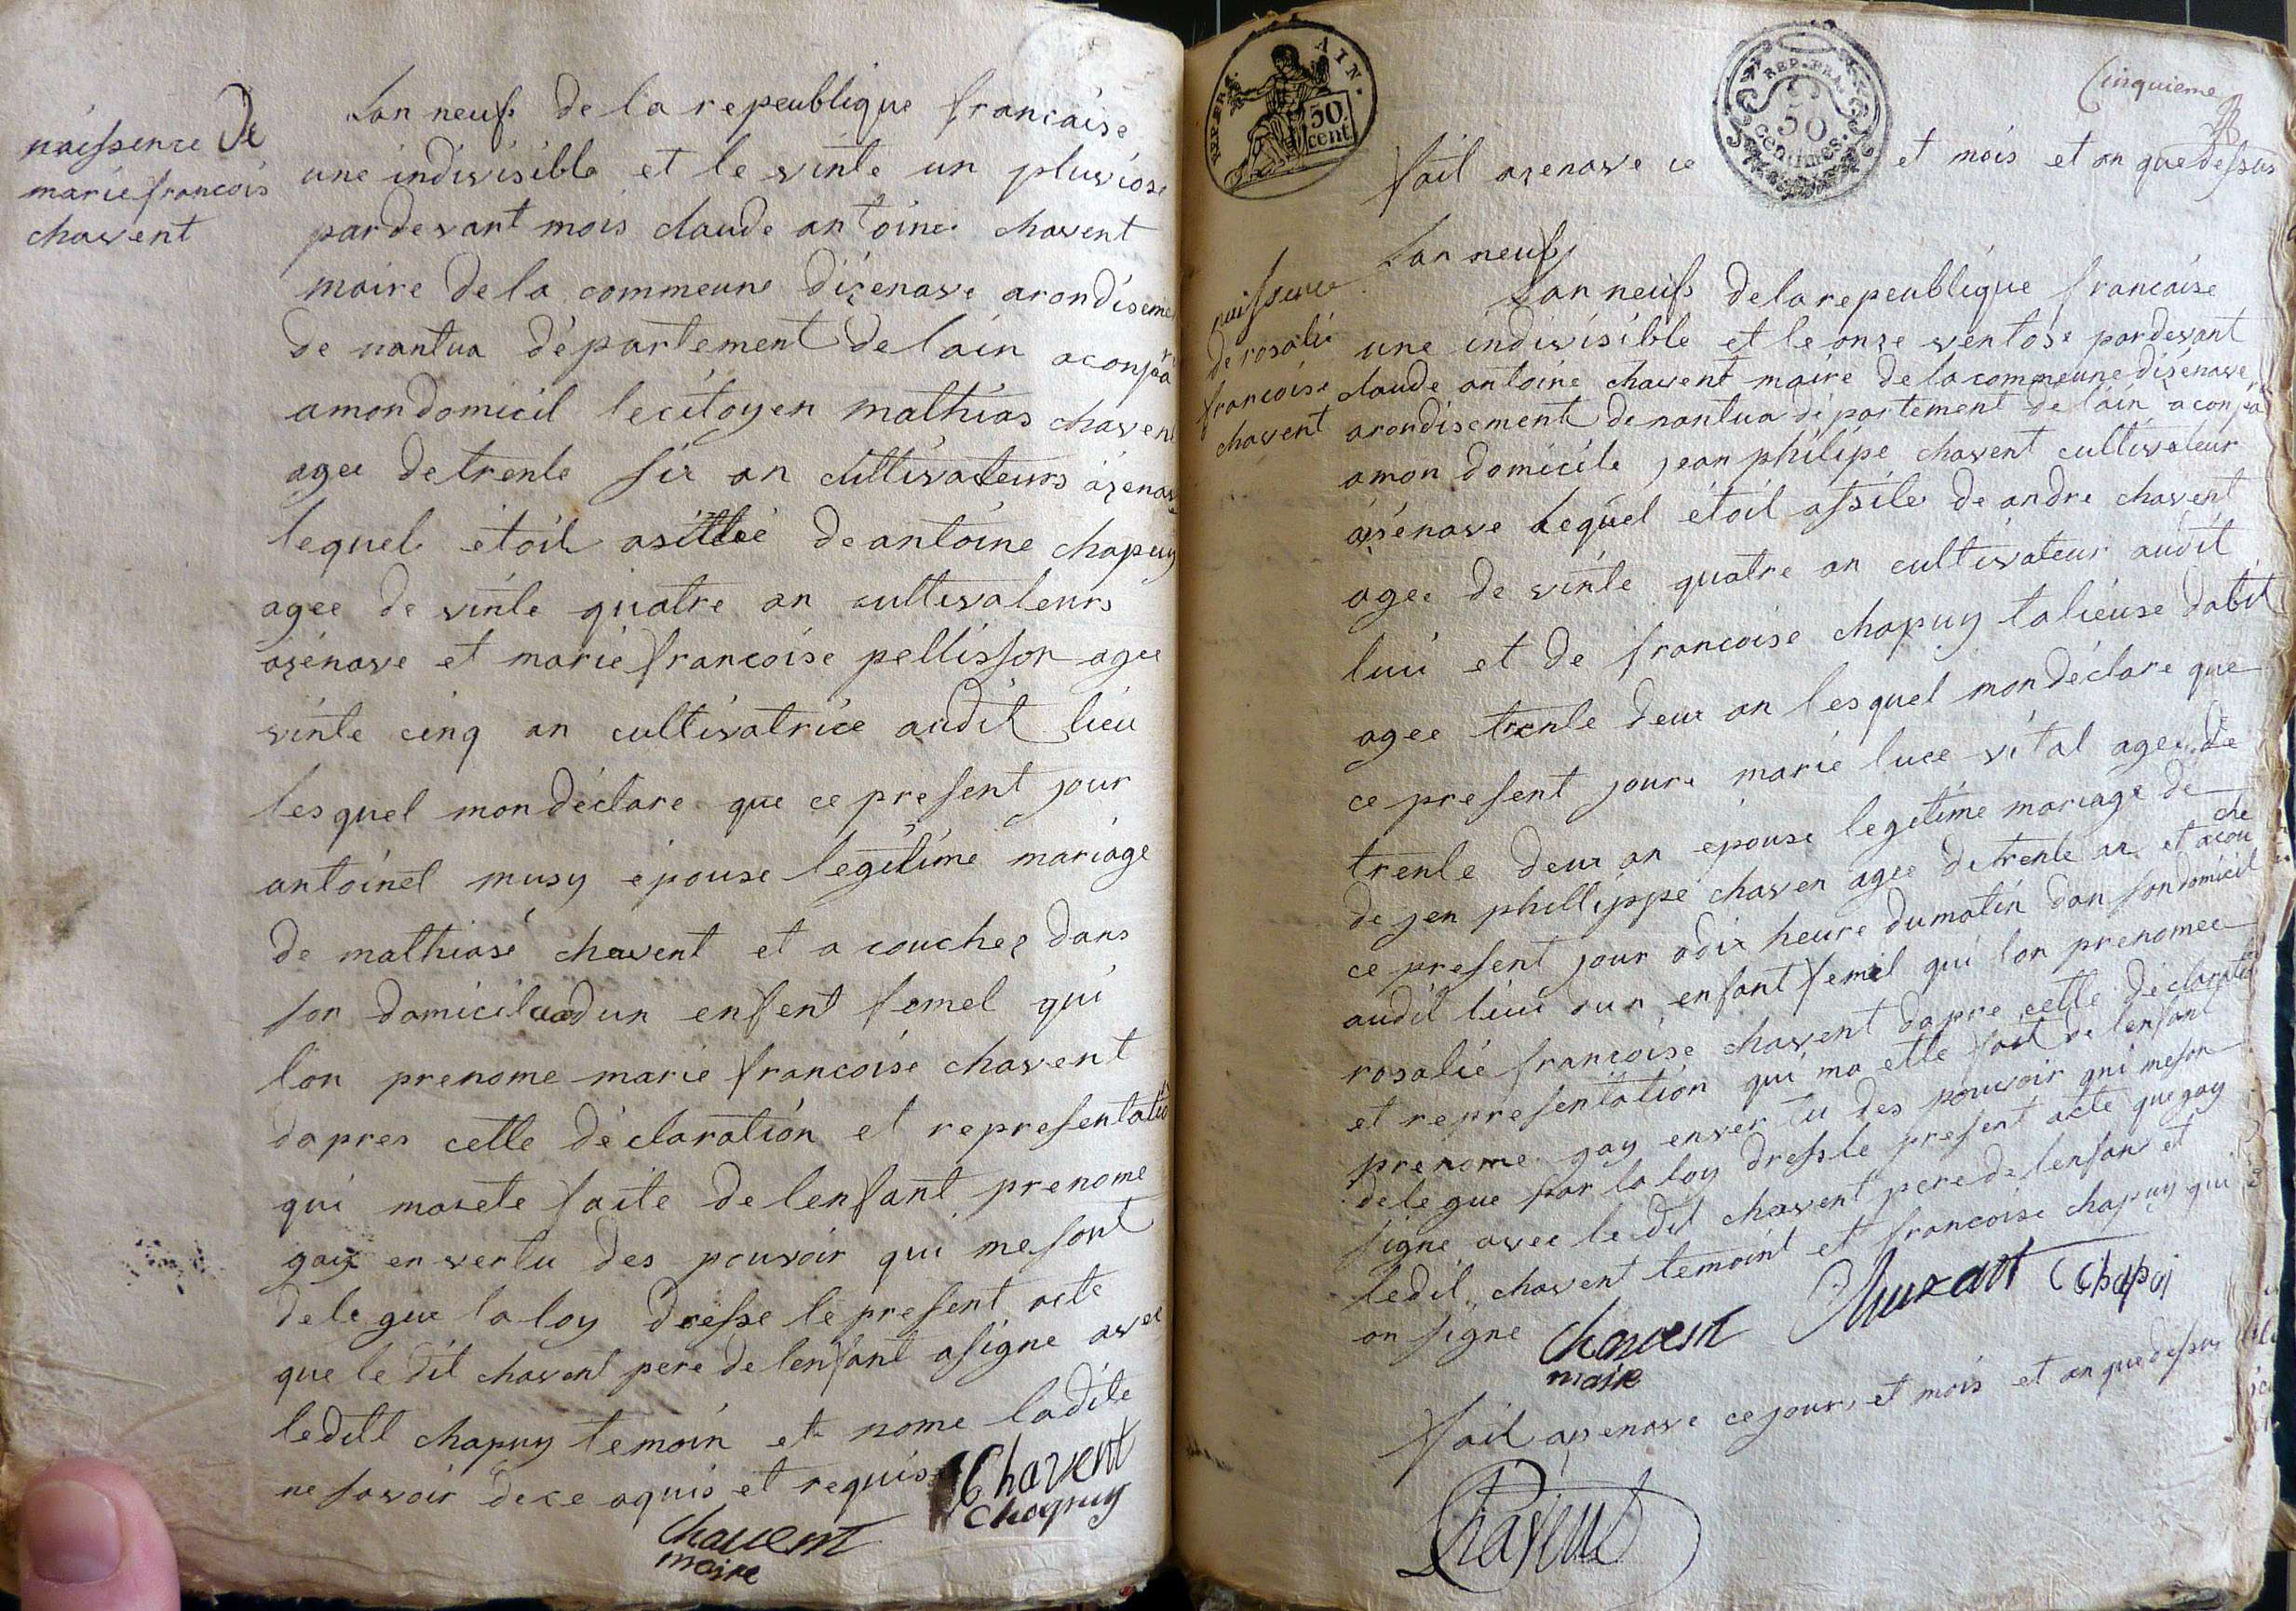 naissence De
marie francois
chavent
Lan neufs de la repeublique francaise
une indivisible et le vinte un pluviose
pardevant mois claude antoine chavent
maire de la commeune dizenave arondiseme
de nantua département de lain a conpa
a mon domicil le citoyen mathias chavent
agee de trente six an cultivateurs a izenave
lequel étoit asittée de antoine chapuy
agee de vinte quatre an cultivateurs
a izénave et marie francoise pellisson agee
vinte cinq an cultivatrice audit lieu
lesquel mon déclare que ce present jour
antoinet musy épouse legitime mariage
de mathiase chavent et a couchee dans
son domicil dun enfent femel qui
lon prenome marie francoise chavent
dapres cette déclaration et representatio
qui ma ete faite de lenfant prenome
gay en vertu des pouvoir qui me sont
delegue la loy dresse le present acte
que le dit chavent pere de lenfant a signe avec
ledit chapuy temoin et nome ladite
ne savoir de ce aquis et requis
Chavent
chapuy
chavent
maire
REP. FRA. AIN.
50
cent.
REP. FRA.
50
centimes.
Cinquieme
fait a izenave ce et mois et an que dessus
Lan neufs
naissence
de rosalie
francoise
chavent
Lan neufs de la repeublique francaise
une indivisible et le onze ventose pardevant
claude antoine chavent maire de la commeune dizénave
arondisement de nantua département de lain a conpa
a mon domicile jean philipe chavent cultivateur
a izénave Lequel étoit assile de andre chavent
agee de vinte quatre an cultivateur audit
luii et de francoise chapuy talieuse dabit
agee trente deux an lesquel mon déclare que
ce present jour marie luce vital agee de
trente deux an epouse legitime mariage de
de jen phillippe chaven agee de trente an et acou
che
ce present jour a dix heure du matin dan son domicil
audit liuu dun enfant femel qui lon prenomee
rosalie francoise chavent dapre cette declaratio
et representation qui ma ette fait de lenfant
prenome gay en vertu des pouvoir qui me son
delegue par la loy dresse le present acte que gay
signe avec le dit chavent pere de lenfant et
ledit chavent temoint et francoise chapuy qui
on signe
chavent
maire
Chapui
fait a izenave ce jour et mois et an que dessus
Chavent